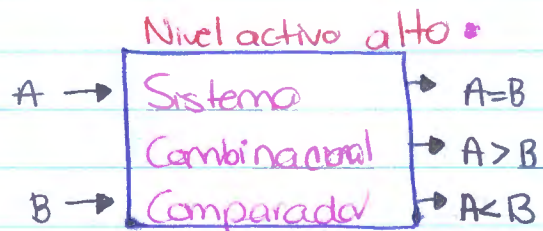 Nivel activo alto
A → Sistema → A=B
Combinacional → A>B
B → Comparador → A<B